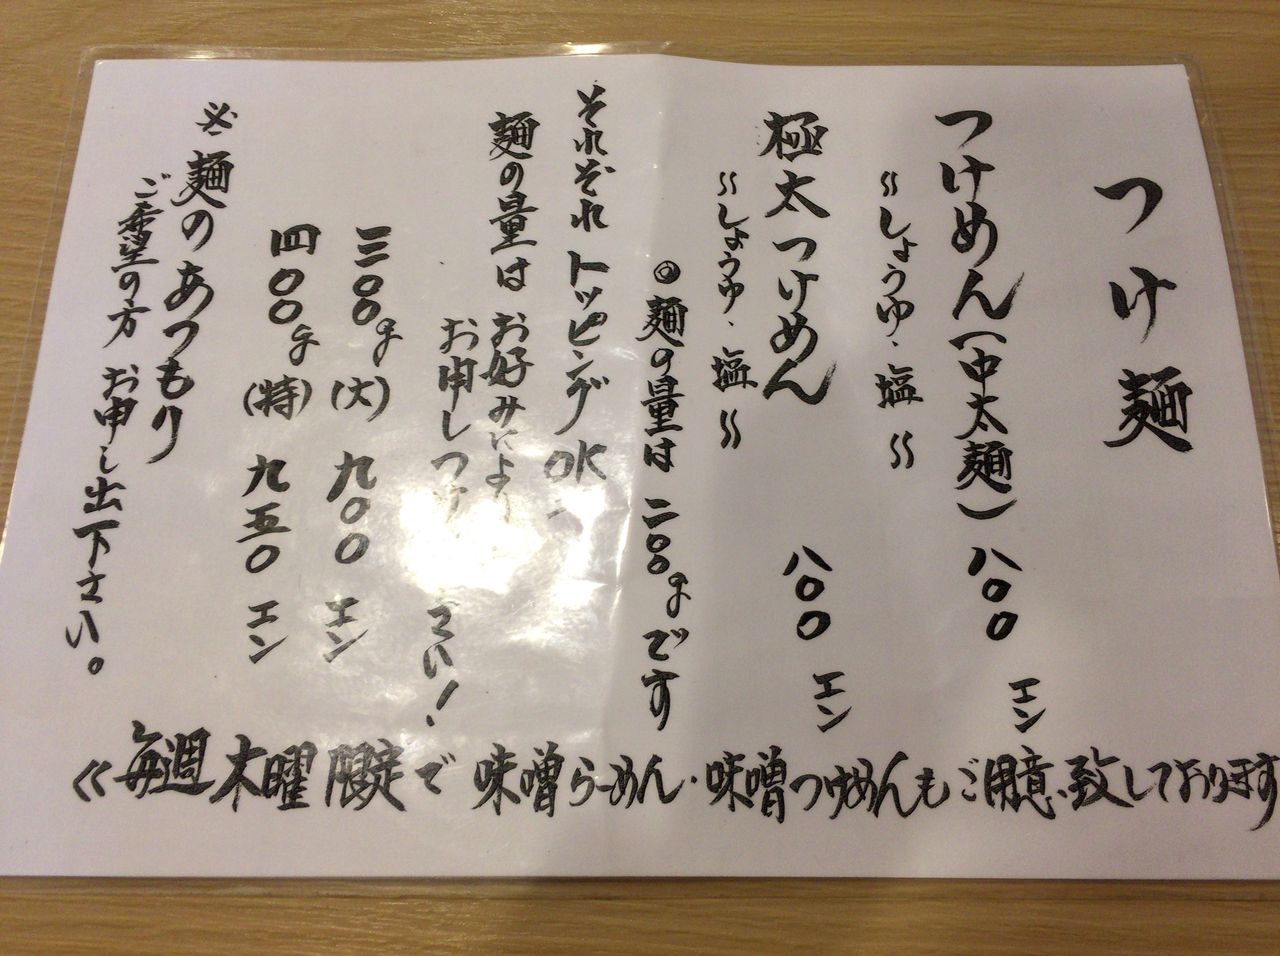 つけ麺
つけめん(中太麺) 八〇〇 エン
〜しょうゆ・塩〜
極太つけめん 八〇〇 エン
〜しょうゆ・塩〜
◎麺の量は二〇〇gです
それぞれトッピングOK
麺の量はお好みにより
お申しつけ さい!
三〇〇g(大) 九〇〇 エン
四〇〇g(特) 九五〇 エン
※麺のあつもり
ご希望の方 お申し出下さい。
《毎週木曜限定で 味噌らーめん・味噌つけめんもご用意致しております